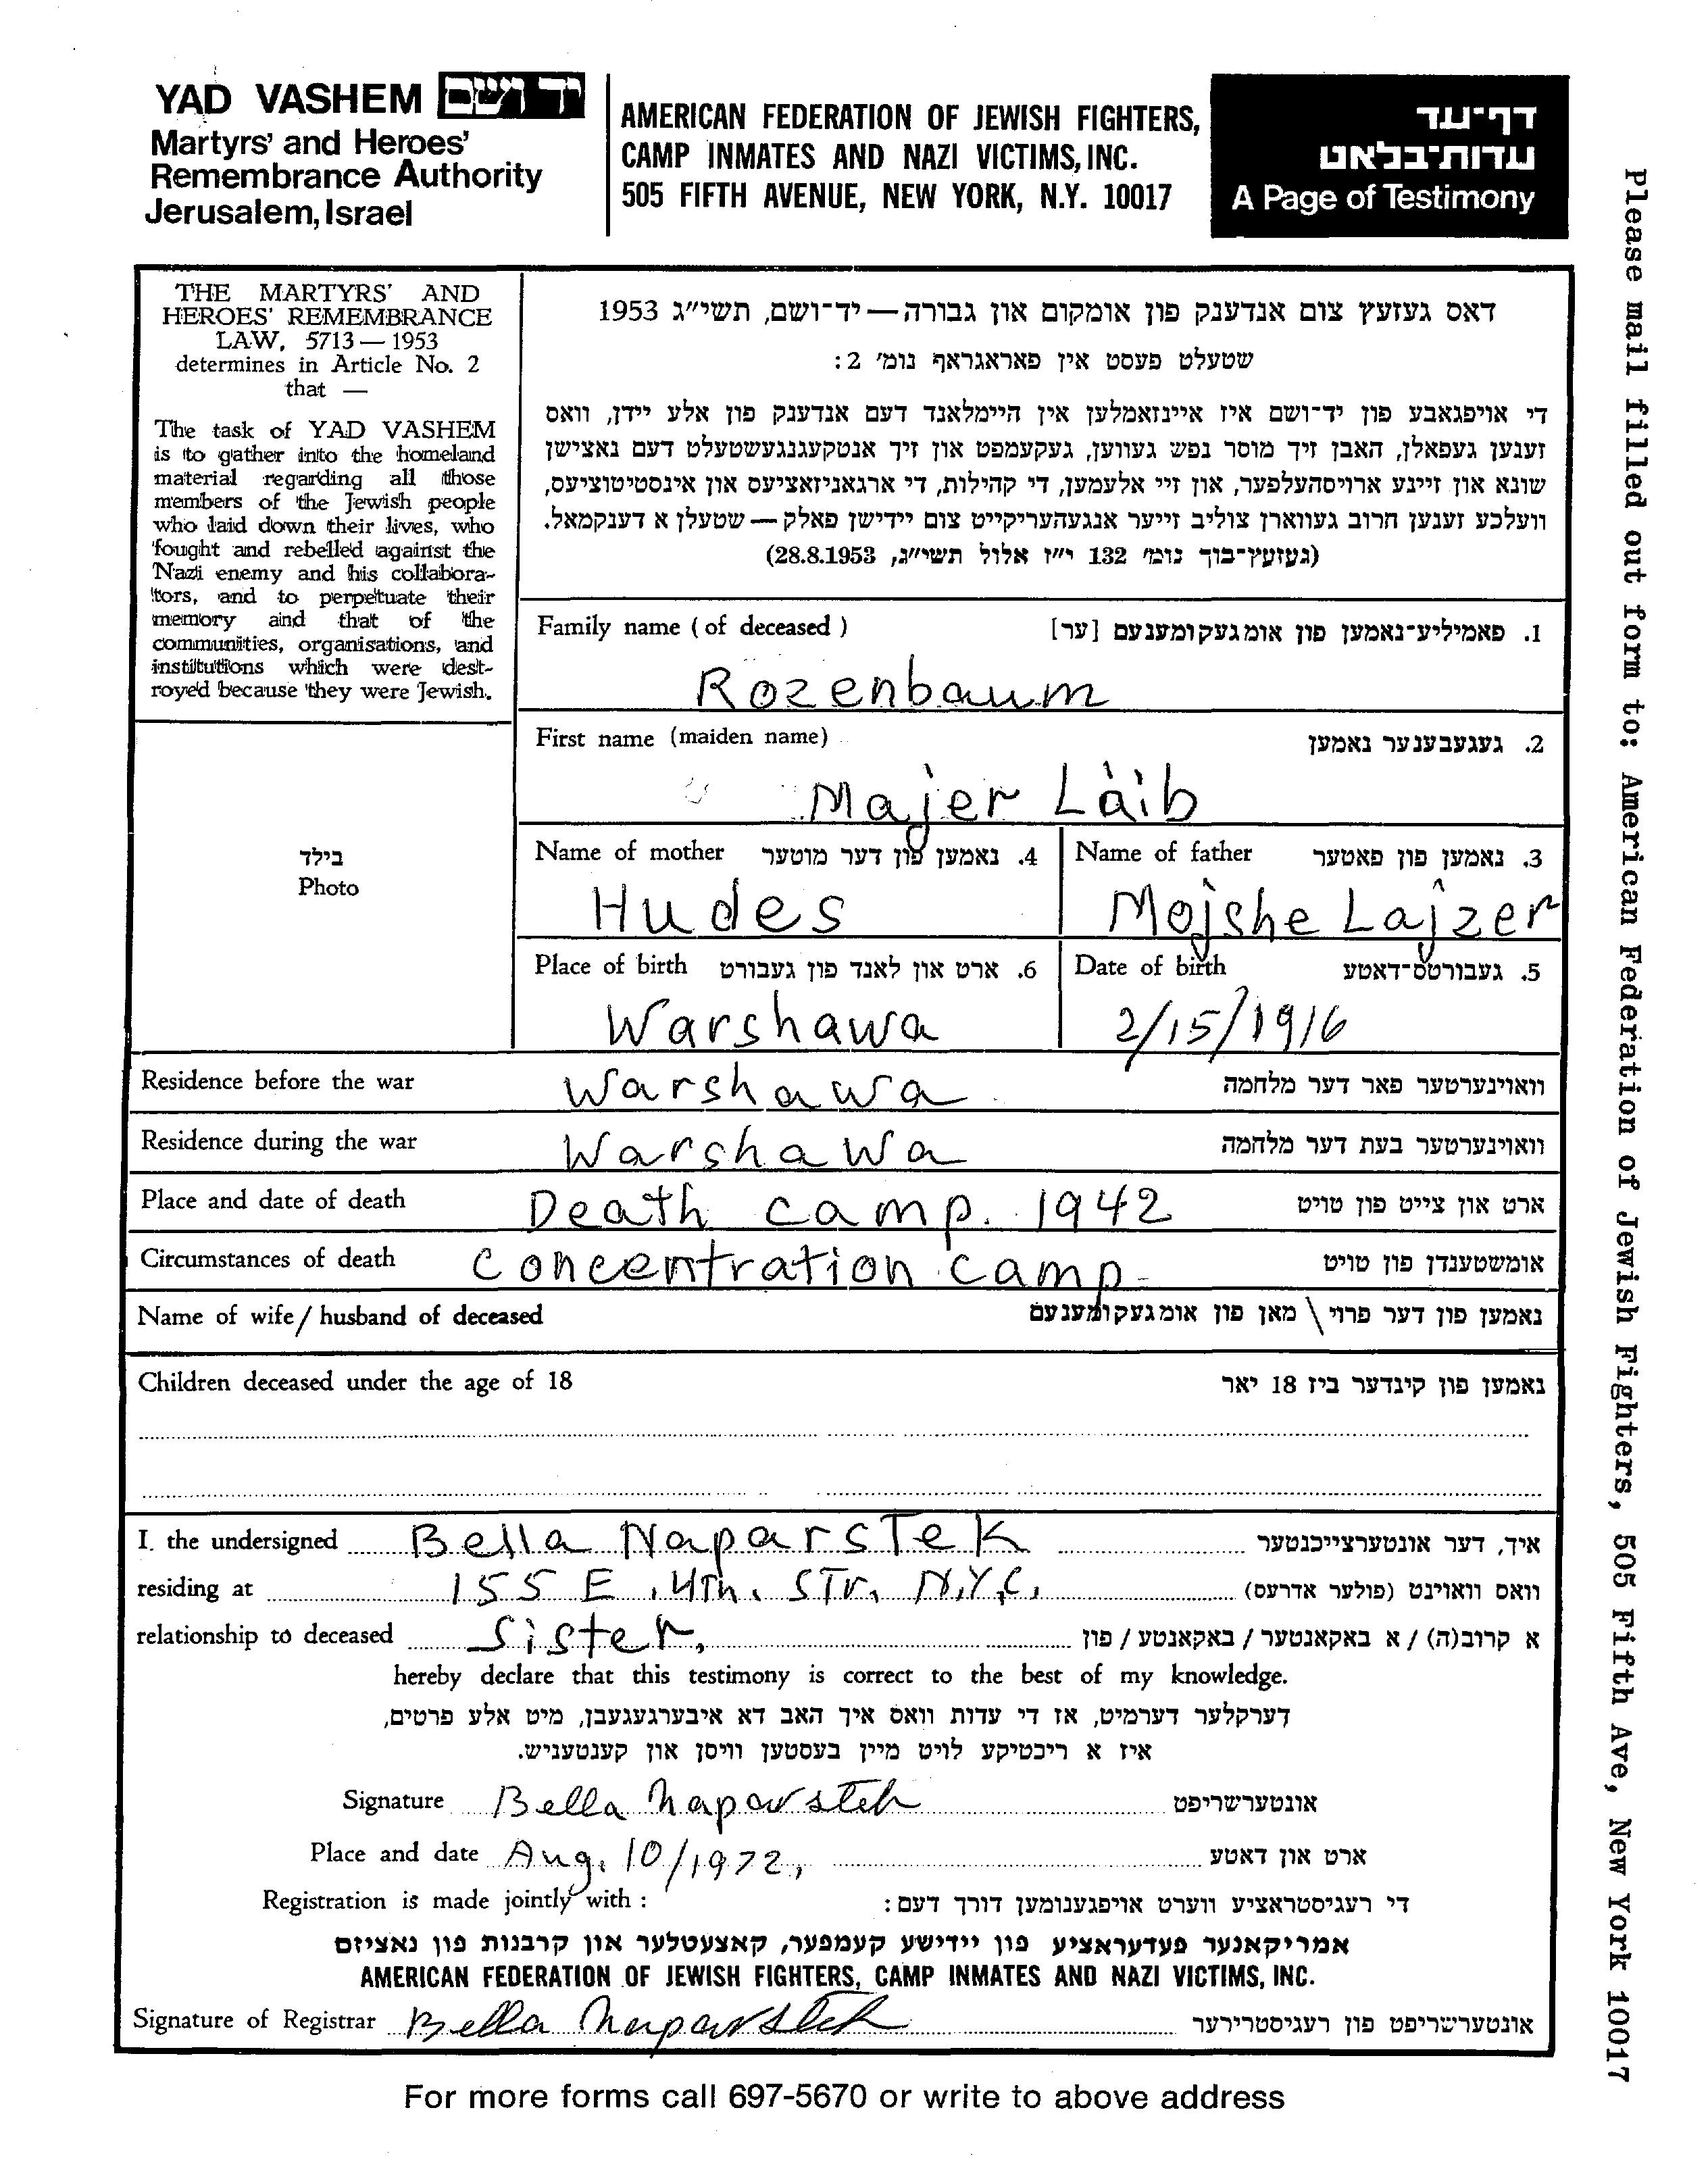 YAD VASHEM יד ושם
Martyrs' and Heroes'
Remembrance Authority
Jerusalem, Israel
AMERICAN FEDERATION OF JEWISH FIGHTERS,
CAMP INMATES AND NAZI VICTIMS, INC.
505 FIFTH AVENUE, NEW YORK, N.Y. 10017
דף־עד
עדות־בלאט
A Page of Testimony
Please mail filled out form to: American Federation of Jewish Fighters, 505 Fifth Ave, New York 10017
THE MARTYRS' AND
HEROES' REMEMBRANCE
LAW, 5713 — 1953
determines in Article No. 2
that —
The task of YAD VASHEM
is to gather into the homeland
material regarding all those
members of the Jewish people
who laid down their lives, who
fought and rebelled against the
Nazi enemy and his collabora-
tors, and to perpetuate their
memory and that of the
communities, organisations, and
institutions which were dest-
royed because they were Jewish.
דאס געזעץ צום אנדענק פון אומקום און גבורה — יד־ושם, תשי״ג 1953
שטעלט פעסט אין פאראגראף נומ׳ 2:
די אויפגאבע פון יד־ושם איז איינזאמלען אין היימלאנד דעם אנדענק פון אלע יידן, וואס
זענען געפאלן, האבן זיך מוסר נפש געווען, געקעמפט און זיך אנטקעגנגעשטעלט דעם נאצישן
שונא און זיינע ארויסהעלפער, און זיי אלעמען, די קהילות, די ארגאניזאציעס און אינסטיטוציעס,
וועלכע זענען חרוב געווארן צוליב זייער אנגעהעריקייט צום יידישן פאלק — שטעלן א דענקמאל.
(געזעץ־בוך נומ׳ 132 י״ז אלול תשי״ג, 28.8.1953)
Family name (of deceased) 1. פאמיליע־נאמען פון אומגעקומענעם [ער]
Rozenbaum
First name (maiden name) 2. געגעבענער נאמען
Majer Laib
בילד
Photo
Name of mother 4. נאמען פון דער מוטער
Hudes
Name of father 3. נאמען פון פאטער
Mojshe Lajzer
Place of birth 6. ארט און לאנד פון געבורט
Warshawa
Date of birth 5. געבורטס־דאטע
2/15/1916
Residence before the war Warshawa וואוינערטער פאר דער מלחמה
Residence during the war Warshawa וואוינערטער בעת דער מלחמה
Place and date of death Death camp. 1942 ארט און צייט פון טויט
Circumstances of death Concentration camp- אומשטענדן פון טויט
Name of wife / husband of deceased נאמען פון דער פרוי \ מאן פון אומגעקומענעם
Children deceased under the age of 18 נאמען פון קינדער ביז 18 יאר
I. the undersigned Bella Naparstek איך, דער אונטערצייכנטער
residing at 155 E. 4th. Str. N.Y.C. וואס וואוינט (פולער אדרעס)
relationship to deceased Sister, א קרוב(ה) / א באקאנטער / באקאנטע / פון
hereby declare that this testimony is correct to the best of my knowledge.
דערקלער דערמיט, אז די עדות וואס איך האב דא איבערגעגעבן, מיט אלע פרטים,
איז א ריכטיקע לויט מיין בעסטען וויסן און קענטעניש.
Signature Bella Naparstek אונטערשריפט
Place and date Aug. 10/1972, ארט און דאטע
Registration is made jointly with: די רעגיסטראציע ווערט אויפגענומען דורך דעם:
אמריקאנער פעדעראציע פון יידישע קעמפער, קאצעטלער און קרבנות פון נאציזם
AMERICAN FEDERATION OF JEWISH FIGHTERS, CAMP INMATES AND NAZI VICTIMS, INC.
Signature of Registrar Bella Naparstek אונטערשריפט פון רעגיסטרירער
For more forms call 697-5670 or write to above address